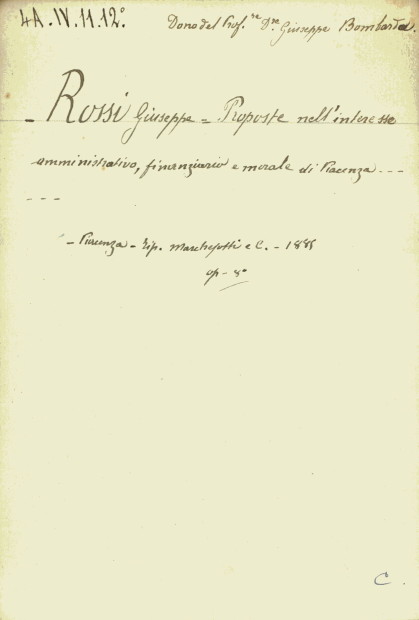 4A.IV.11.12°
Dono del Prof.re Dre Giuseppe Bombarda.
- Rossi Giuseppe = Proposte nell'interesse
amministrativo, finanziario e morale di Piacenza - - -
- - -
- Piacenza - Tip. Marchesotti e C. - 1885
op - 8°
C.